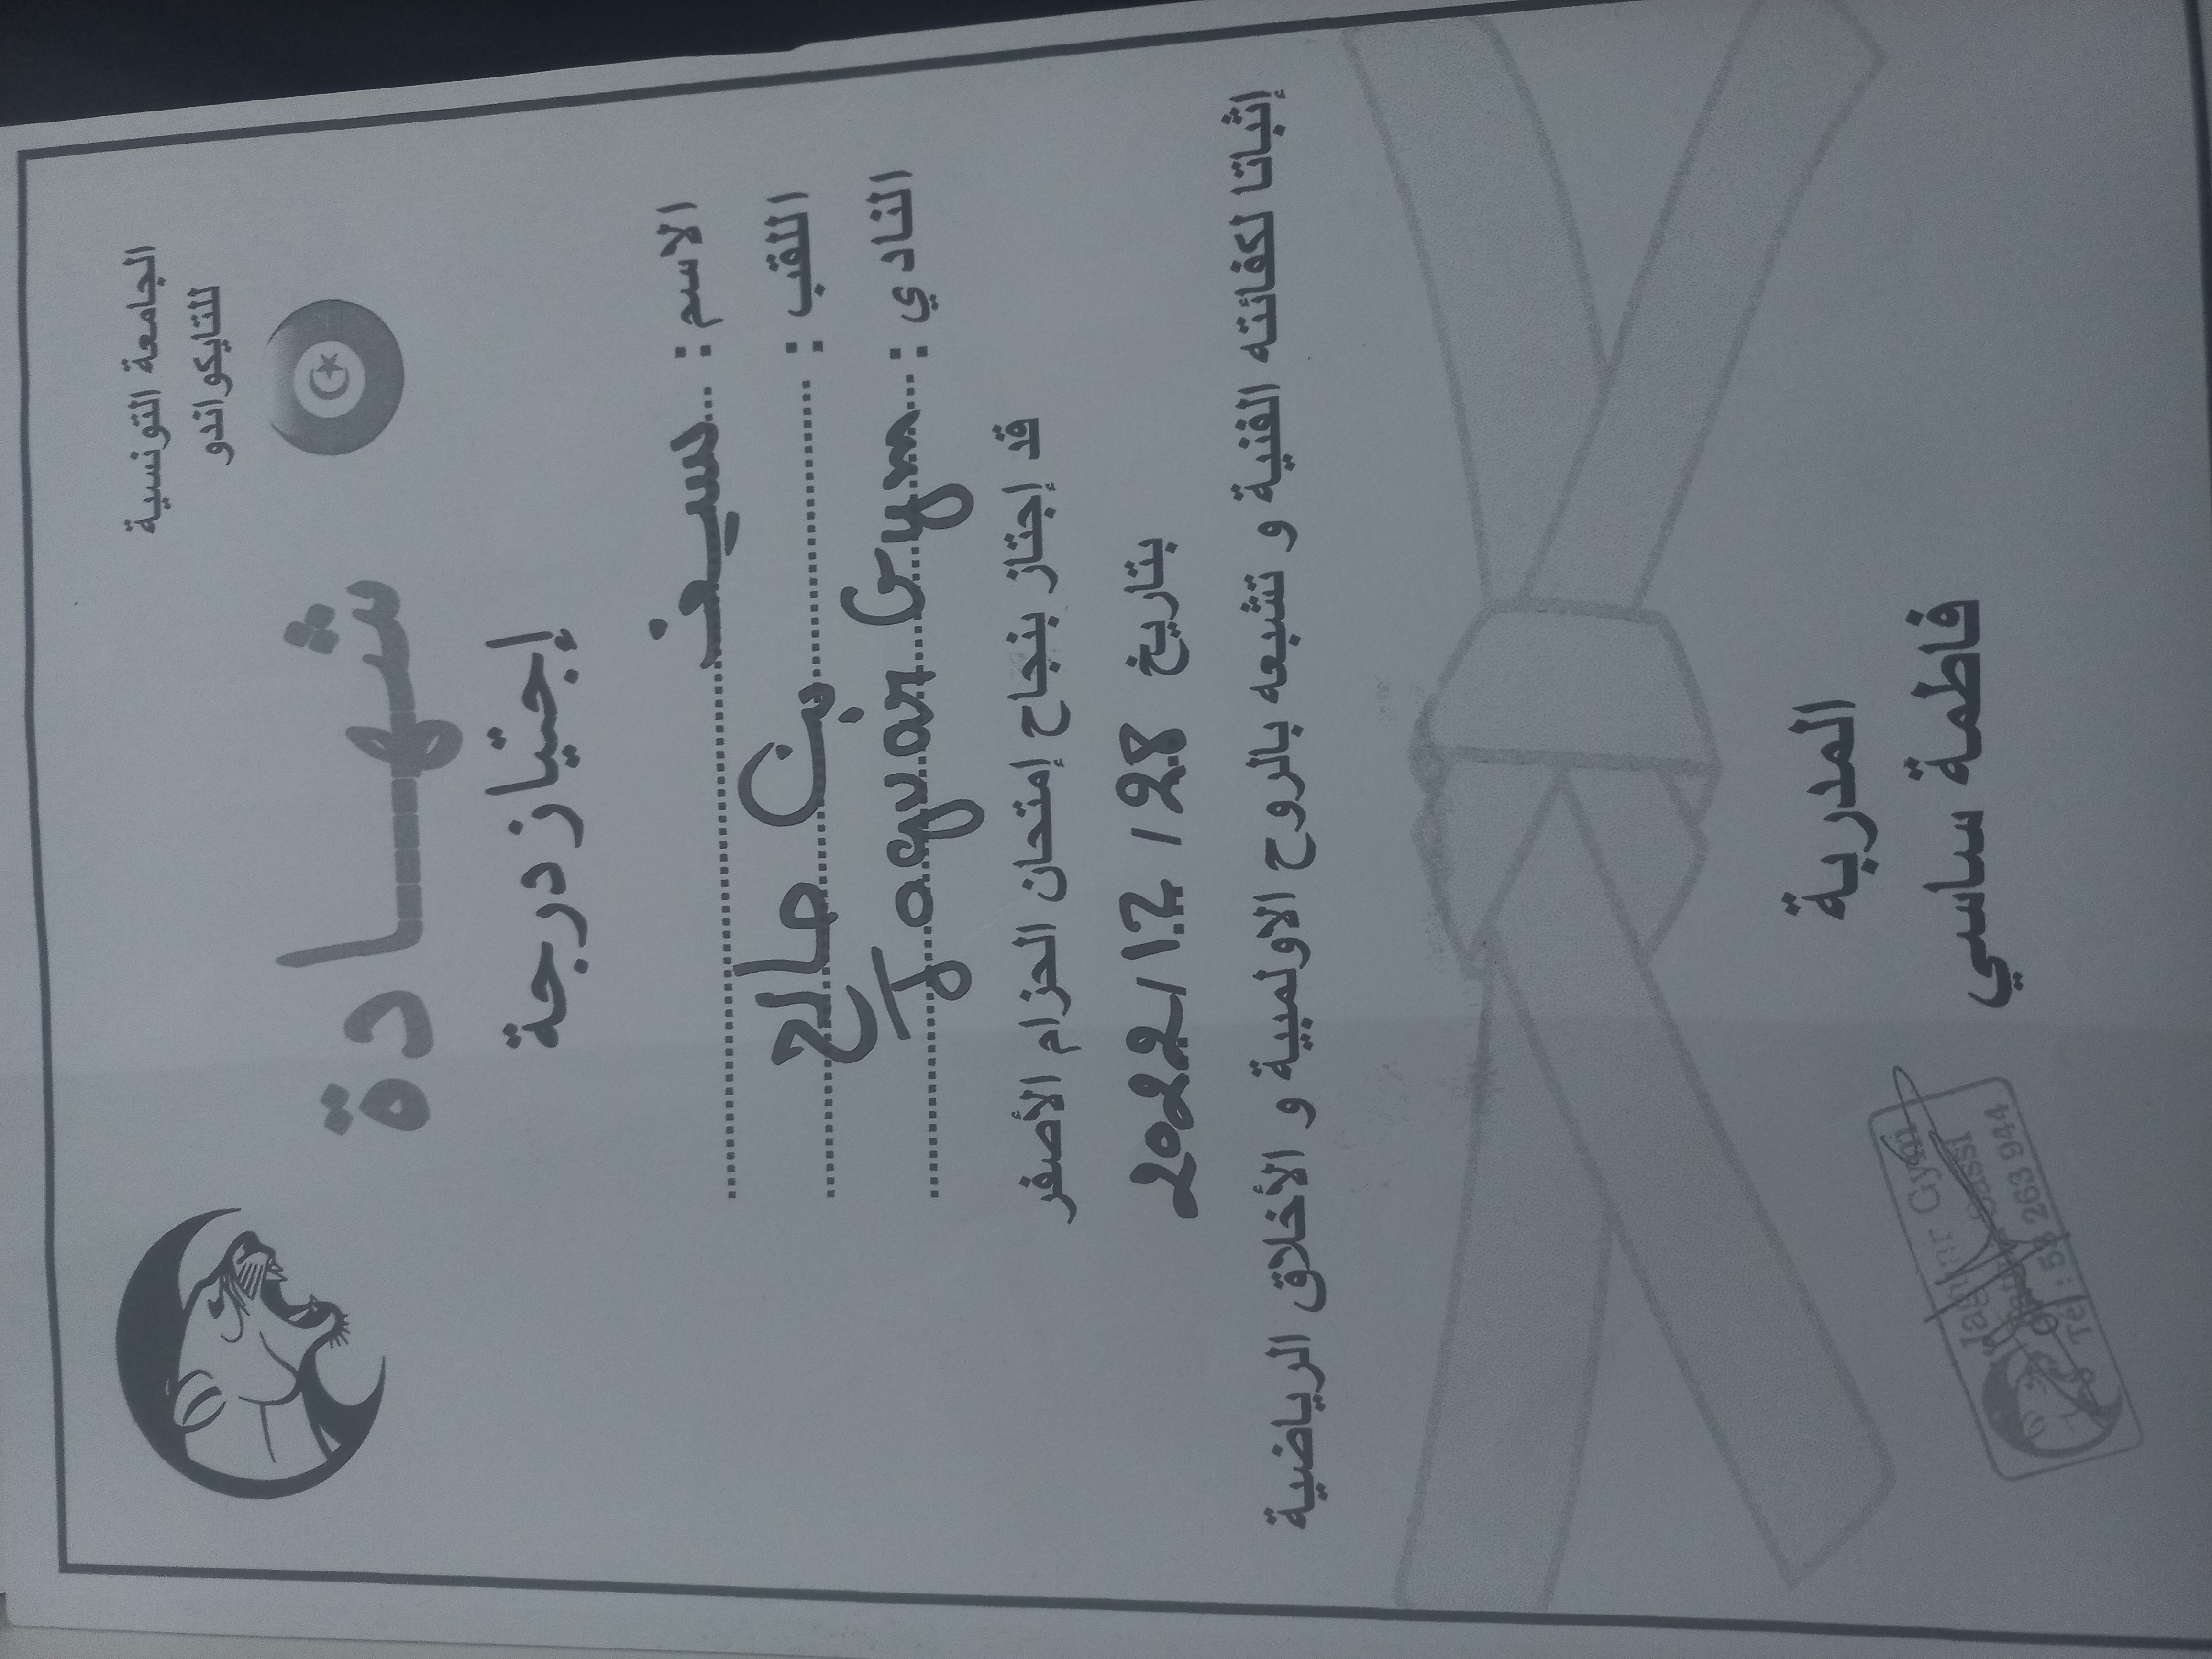 الجامعة التونسية
للتايكواندو
شهادة
إجتياز درجة
الاسم : سيف
اللقب : بن صالح
النادي : Jaguar Gym
قد إجتاز بنجاح إمتحان الحزام الأصفر
بتاريخ 2022/12/28
إثباتا لكفائته الفنية و تشبعه بالروح الاولمبية و الأخلاق الرياضية
المدربة
فاطمة ساسي
Jaguar Gym
Sassi
Tel : 58 263 944